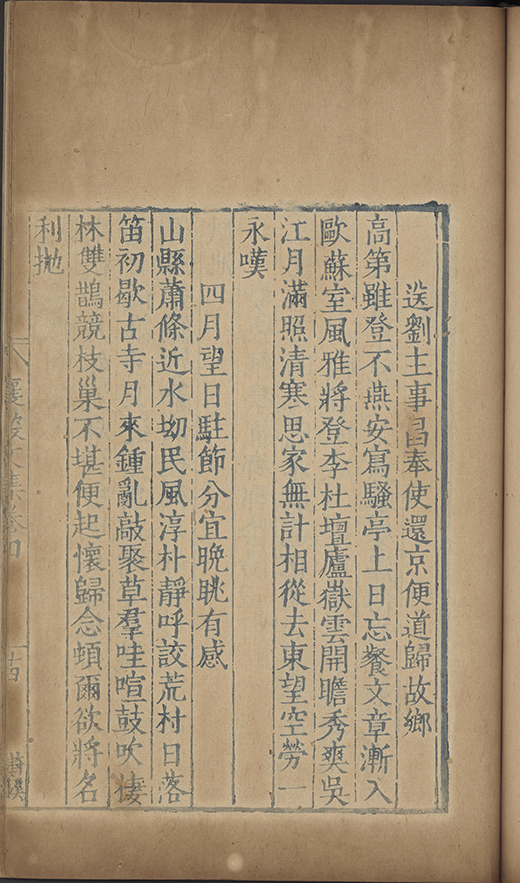 送劉主事昌奉使還京便道歸故鄉
高第雖登不燕安寫騷亭上日忘餐文章漸入
歐蘇室風雅將登李杜壇廬嶽雲開瞻秀爽吳
江月滿照清寒思家無計相從去東望空勞一
永嘆
四月望日駐節分宜晚眺有感
山縣蕭條近水坳民風淳朴靜呼詨荒村日落
笛初歇古寺月來鍾亂敲聚草羣哇喧鼓吹棲
林雙鵲競枝巢不堪便起懷歸念頓爾欲將名
利拋
襄毅文集卷四
十四